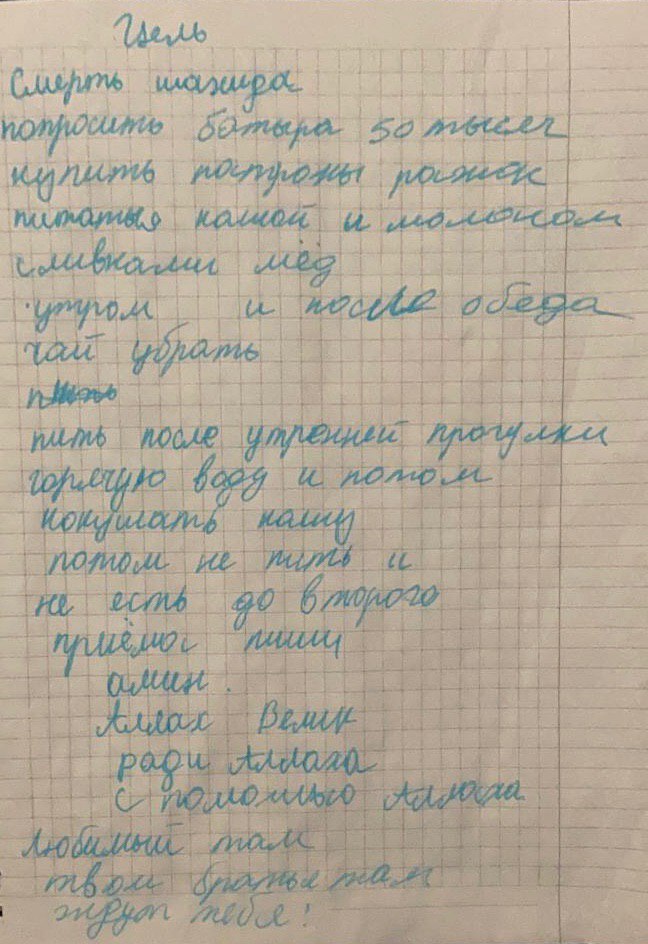 Цель
Смерть шахида
попросить батыра 50 тысяч
купить патроны рожок
питаться кашей и молоком
сливками мёд
утром и после обеда
чай убрать
пить после утренней прогулки
горячую воду и потом
покушать кашу
потом не пить и
не есть до второго
приёма пищи
амин.
Аллах Велик
ради Аллаха
с помощью Аллаха
Любимый там
твои братья там
ждут тебя!